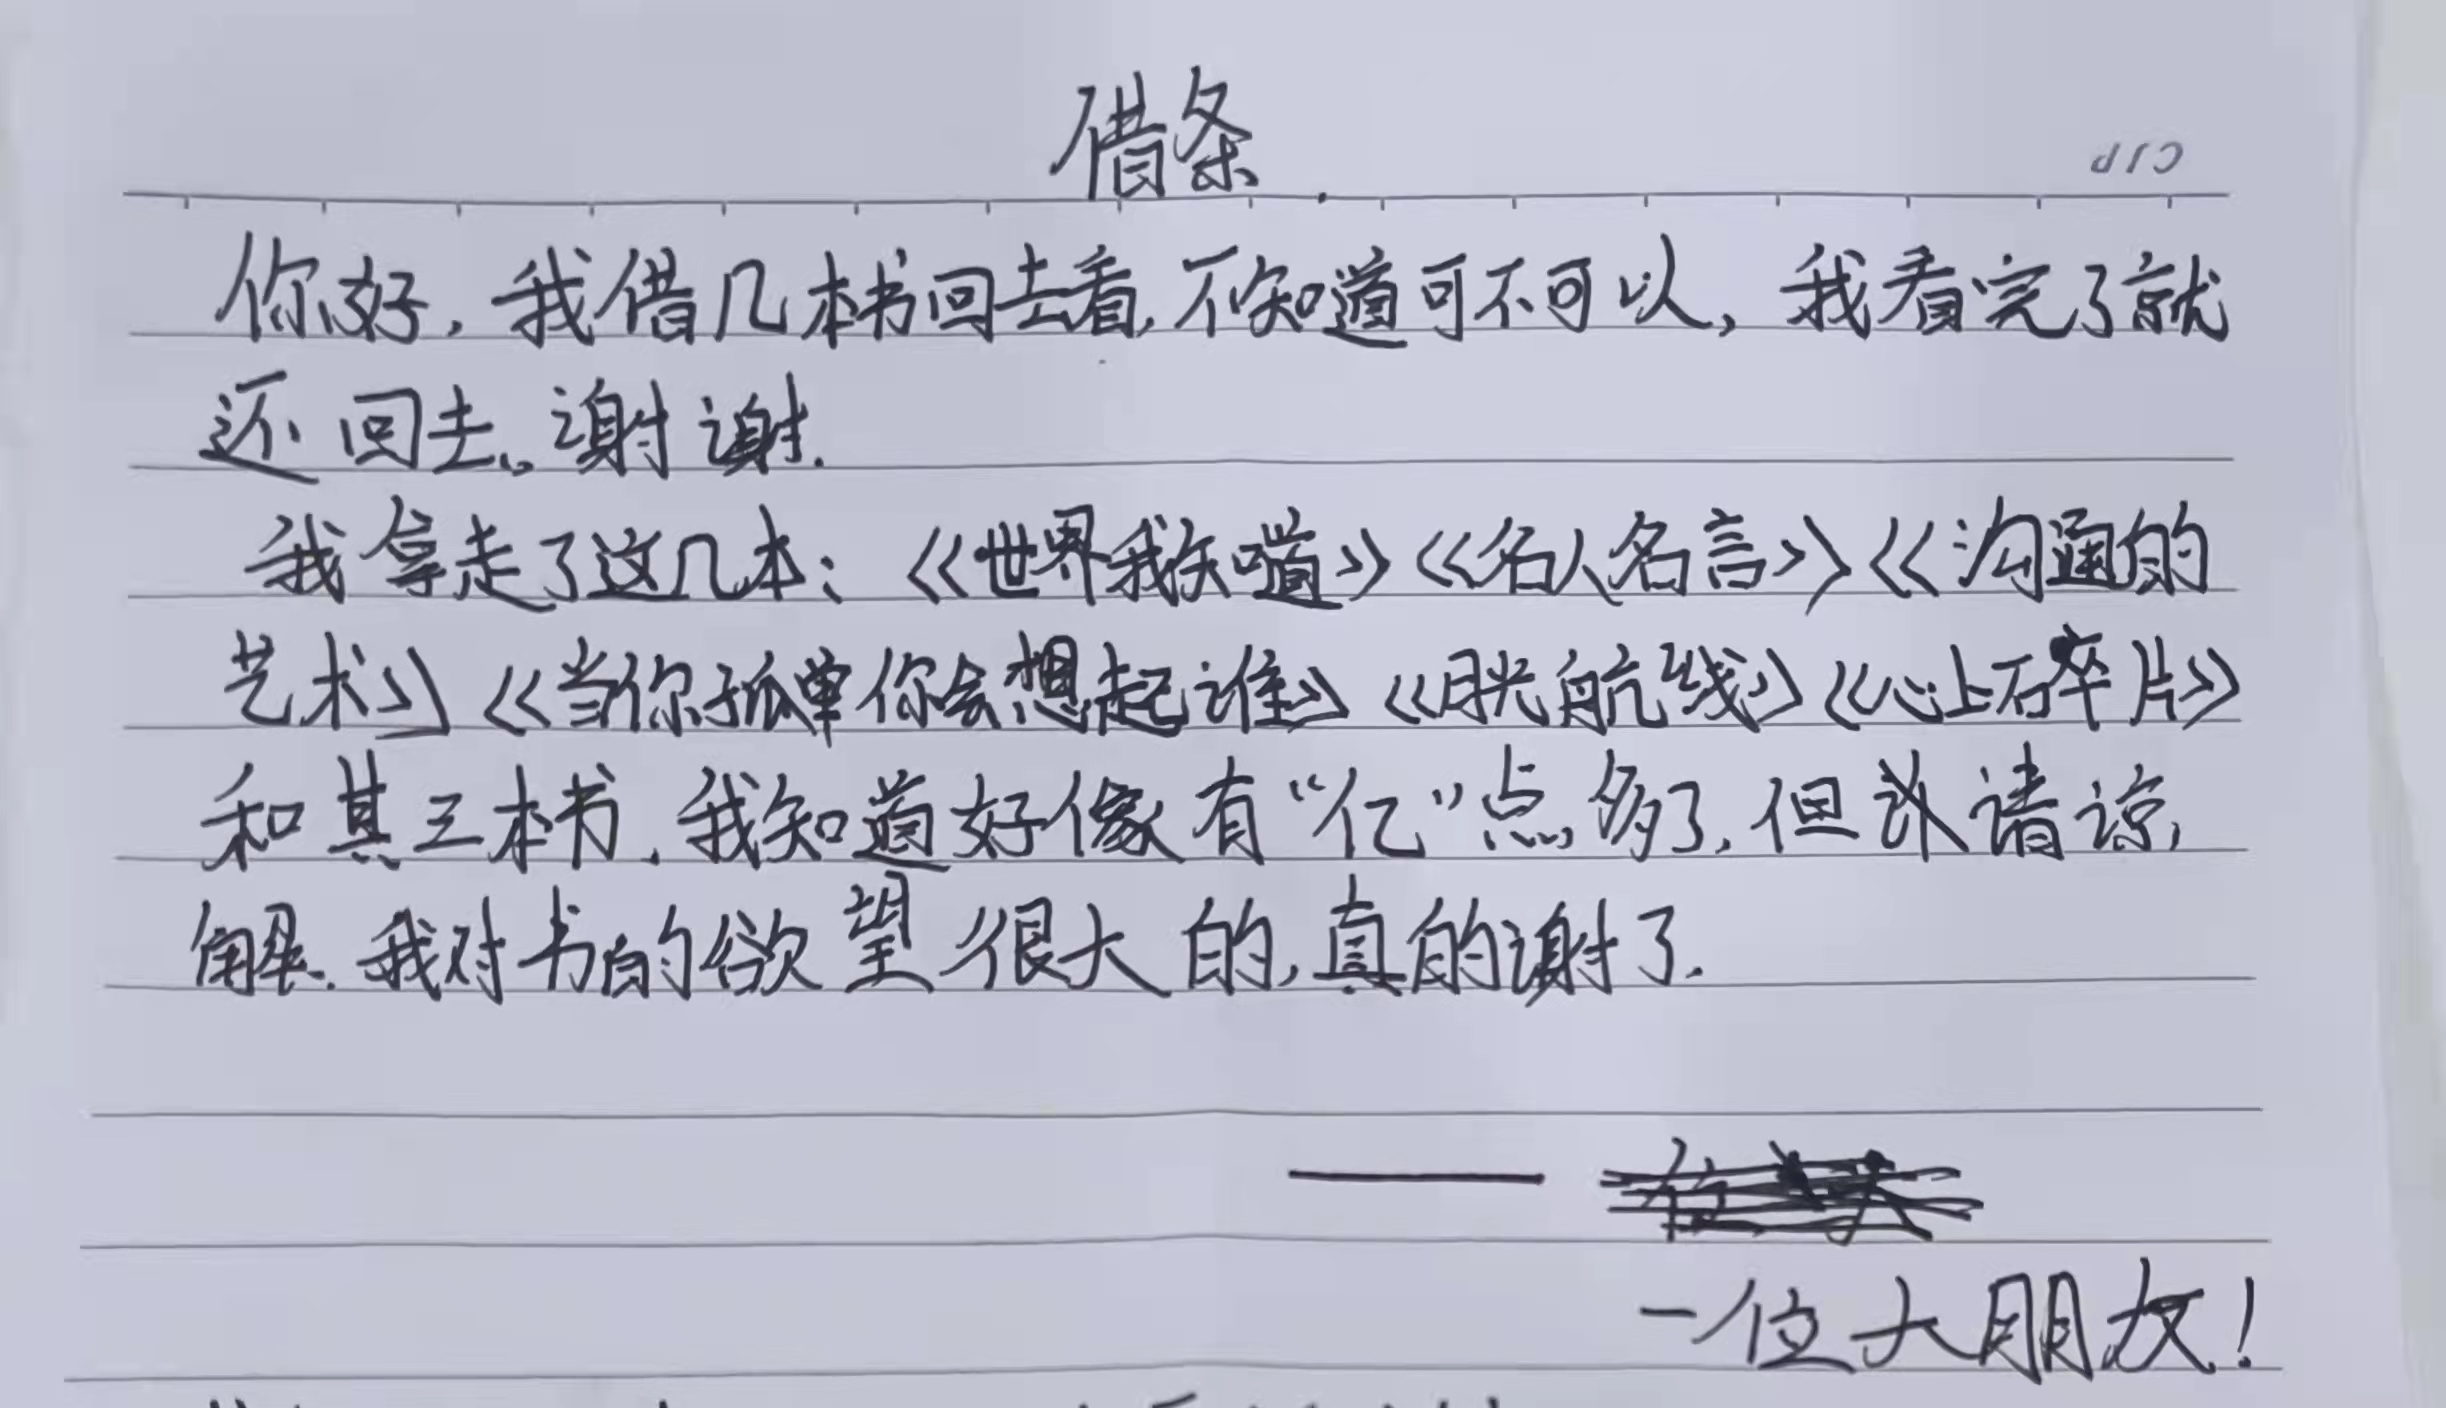 借条.
CJP
你好,我借几本书回去看,不知道可不可以,我看完了就
还回去。谢谢.
我拿走了这几本:《世界我知道》《名人名言》《沟通的
艺术》《当你孤单你会想起谁》《月光航线》《心上碎片》
和其三本书.我知道好像有“亿”点多了,但 请谅,
解.我对书的欲望很大的,真的谢了.
——
一位大朋友!